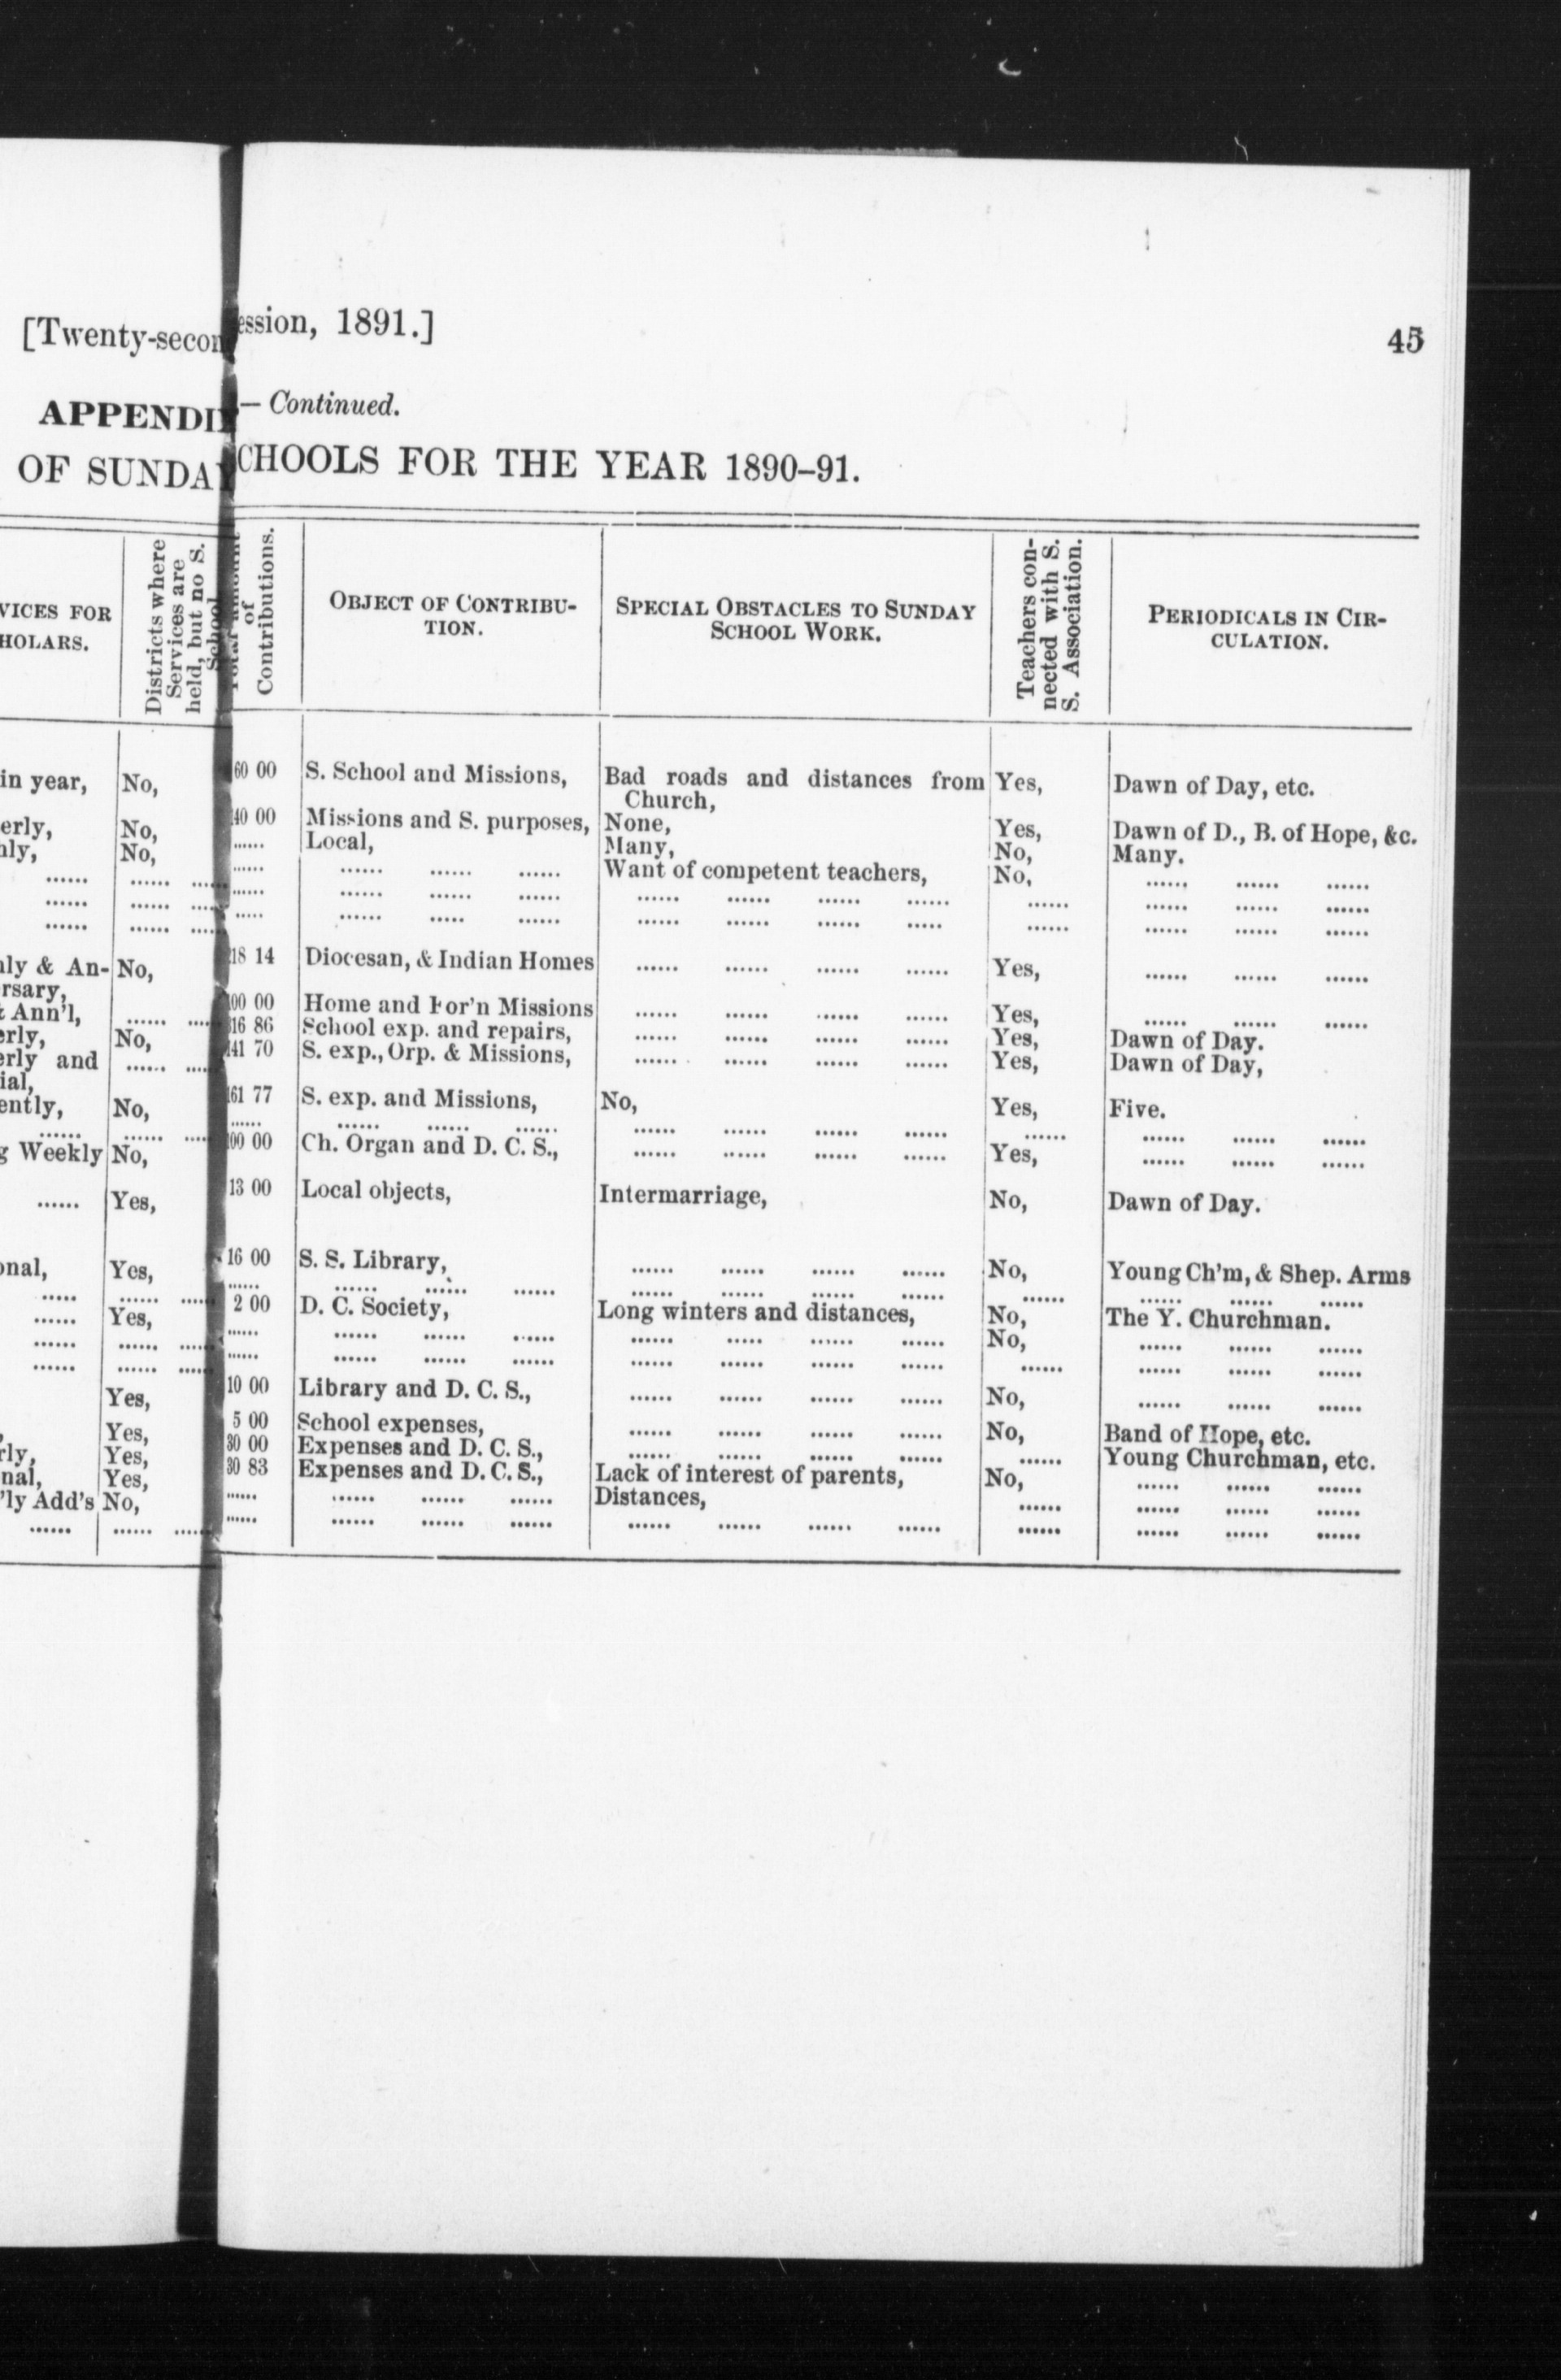 [Twenty-secon ession, 1891.] 45
APPENDI — Continued.
OF SUNDAY CHOOLS FOR THE YEAR 1890-91.
VICES FOR
HOLARS.
Districts where
Services are
held, but no S.
School
of
Contributions.
OBJECT OF CONTRIBU-
TION.
SPECIAL OBSTACLES TO SUNDAY
SCHOOL WORK.
Teachers con-
nected with S.
S. Association.
PERIODICALS IN CIR-
CULATION.
in year, No, 60 00 S. School and Missions, Bad roads and distances from Yes, Dawn of Day, etc.
Church,
erly, No, 40 00 Missions and S. purposes, None, Yes, Dawn of D., B. of Hope, &c.
nly, No, ...... Local, Many, No, Many.
...... ...... ...... ...... ...... ...... ...... Want of competent teachers, No, ...... ...... ......
...... ...... ...... ...... ...... ...... ...... ...... ...... ...... ...... ...... ...... ...... ......
...... ...... ...... ..... ...... ..... ...... ...... ...... ...... ..... ...... ...... ...... ......
nly & An- No, 18 14 Diocesan, & Indian Homes ...... ...... ...... ...... Yes, ...... ...... ......
rsary,
& Ann'l, ...... ..... 00 00 Home and For'n Missions ...... ...... ...... ...... Yes, ...... ...... ......
erly, No, 16 86 School exp. and repairs, ...... ...... ...... ...... Yes, Dawn of Day.
erly and ...... ..... 41 70 S. exp., Orp. & Missions, ...... ...... ...... ...... Yes, Dawn of Day,
ial,
ently, No, 61 77 S. exp. and Missions, No, Yes, Five.
...... ...... ..... ...... ...... ...... ...... ...... ...... ...... ...... ...... ...... ...... ......
g Weekly No, 00 00 Ch. Organ and D. C. S., ...... ...... ...... ...... Yes, ...... ...... ......
...... Yes, 13 00 Local objects, Intermarriage, No, Dawn of Day.
onal, Yes, 16 00 S. S. Library, ...... ...... ...... ...... No, Young Ch'm, & Shep. Arms
..... ...... ..... ...... ...... ...... ...... ...... ...... ...... ...... ...... ...... ...... ......
...... Yes, 2 00 D. C. Society, Long winters and distances, No, The Y. Churchman.
...... ...... ..... ...... ...... ...... ...... ...... ..... ...... ...... No, ...... ...... ......
...... ...... ..... ...... ...... ...... ...... ...... ...... ...... ...... ...... ...... ...... ......
Yes, 10 00 Library and D. C. S., ...... ...... ...... ...... No, ...... ...... ......
Yes, 5 00 School expenses, ...... ...... ...... ...... No, Band of Hope, etc.
rly, Yes, 30 00 Expenses and D. C. S., ...... ...... ...... ...... ...... Young Churchman, etc.
nal, Yes, 30 83 Expenses and D. C. S., Lack of interest of parents, No, ...... ...... ......
'ly Add's No, ...... ...... ...... ...... Distances, ...... ...... ...... ......
...... ...... ..... ...... ...... ...... ...... ...... ...... ...... ...... ...... ...... ...... ......